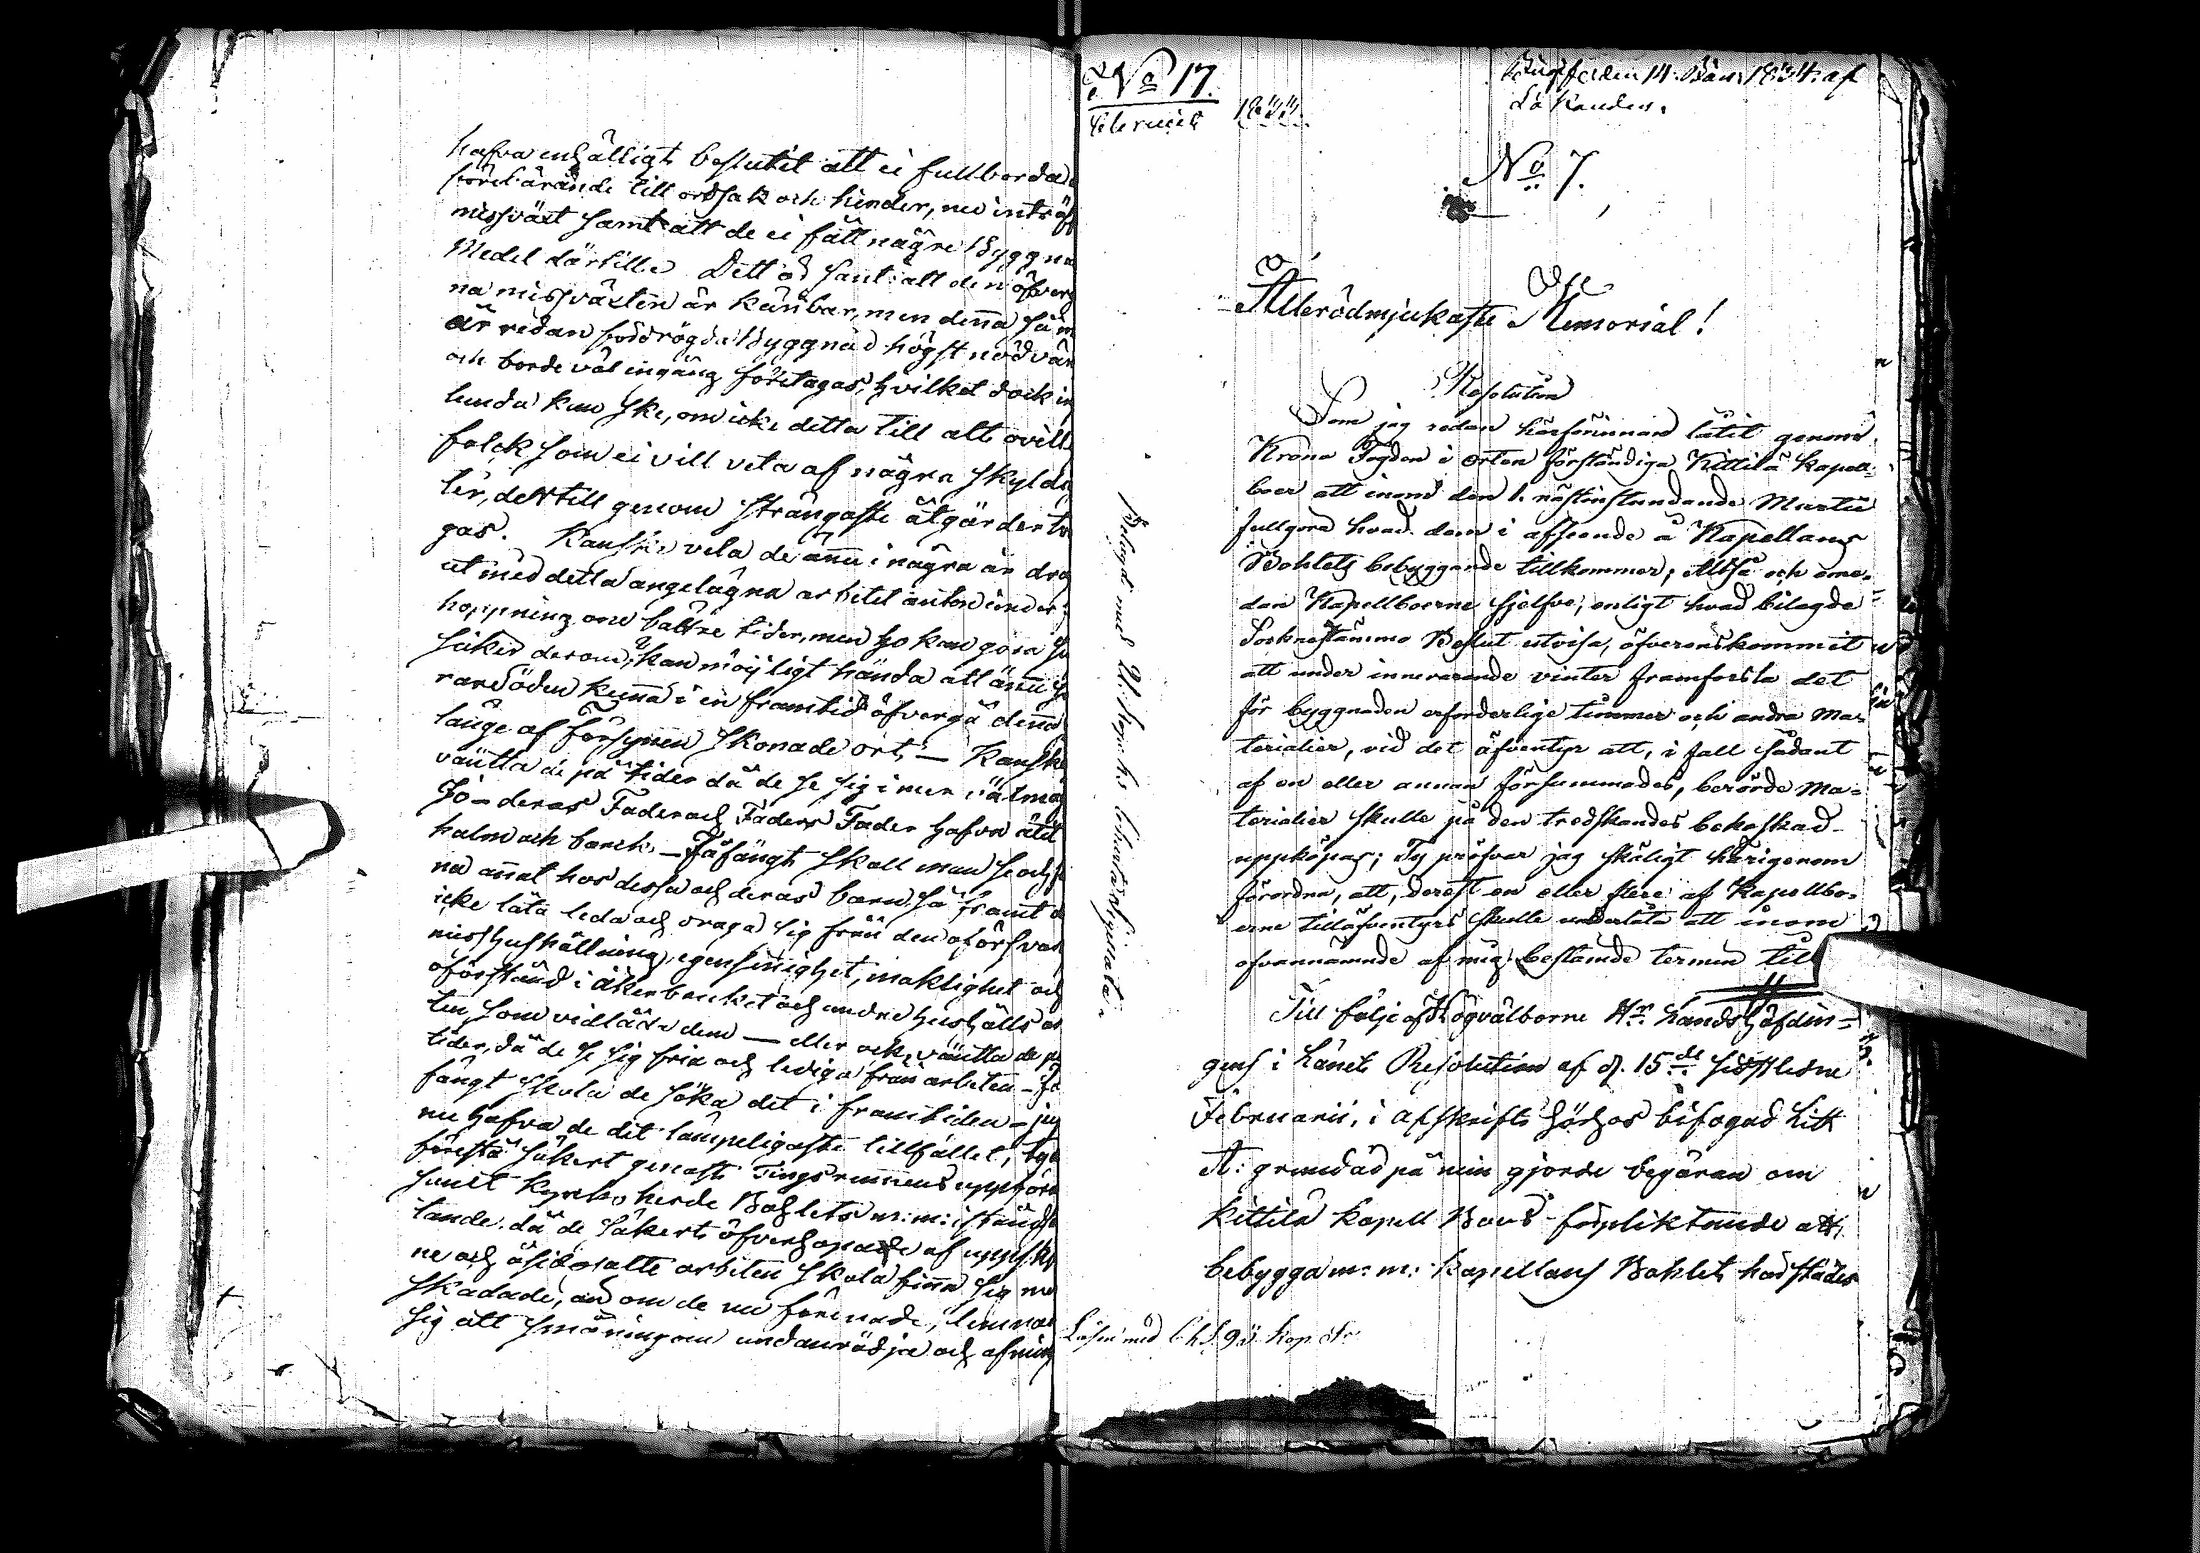 hafva enhälligt beslutit att ei fullborda
förebärande till orsak och hinder, nu inträf
missväxt samt att de ei fått någre Byggna
Medel därtill. Dett är sant: att den öfver
na missväxten är känbar, men denna så m
är redan fördrögda Byggnad högst nödvän
och borde väl ingång företagas, hvilket dock in
lunda kan ske, om icke detta till alt ovill
folck som ei vill veta af några skyldi
ter, dertill genom strängaste åtgärder tv
gas. Kanske vela de ännu i några år drag
ut med detta angelägna arbetet under
hoppning om bättre tider, men ho kan göra
säker derom, kan möjligt hända att ännu
raröden kunna i en framtid öfvergå denna
länge af försynen skonade ort, — Kanske
väntta de på tider då de se sig i mer välmå
Jo – deras Fader och Faders Fader hafva ätit
halm och barck. — Fåfängt skall man se och
na annat hos dessa och deras barn så framt
icke låta leda och draga sig från den oförsvar
misshushållning, egensinighet, maklighet och
oförstånd i åkerbruket och andra hushålls
ten som vidlåda dem — eller ock väntta de på
tider, då de se sig fria och lediga från arbeten – få
fängt skola de söka det i framtiden – ju
nu hafva de det lämpeligaste tillfället, ty
förestå säkert genast Tingsrummens uppför
samt Kyrkoherde Bohlets m: m: iståndsä
tande, då de säkert öfverhopade af uppsk
ne och åsidosatte arbeten skola finna sig me
skadade, än om de nu förenade, lemna
sig att småningom undanrödja och afmin
No 17.
1833
No 7.
Allerödmjukaste Memorial!
Resolution
Som jag redan härförinnan låtit genom
Krono Fogden i orten förständiga Kittilä Kapell-
boer att inom den 1. nästinstundande Martii
fullgöra hvad dem i afseende å Kapellans
Bohlets bebyggande tillkommer; Altså och eme-
dan Kapellboerne sjelfve, enligt hvad bilagde
Socknestämmo Beslut utvisa, öfverenskommit
att under innevarande vinter framforsla det
för byggnaden erforderlige timmer och andra Ma-
terialier, vid det äfventyr att, i fall sådant
af en eller annan försummades, berörde Ma-
terialier skulle på den tredskandes bekostnad
uppköpas; Ty pröfvar jag skäligt härigenom
förordna, att, derest en eller flere af Kapellbo-
erne tilläfventyrs skulle underlåta att inom
ofvannämnde af mig bestämde termin till
Till följe af Högvälborne Hr. Landshöfdin-
gens i Länet Resolution af d. 15de sidstledne
Februarii, i afskrift härhos bifogad Litt
A: grundad på min gjorde begäran om
Kittilä Kapell Boers förpliktande att
bebygga m: m: Kapellans Bohlet härstädes